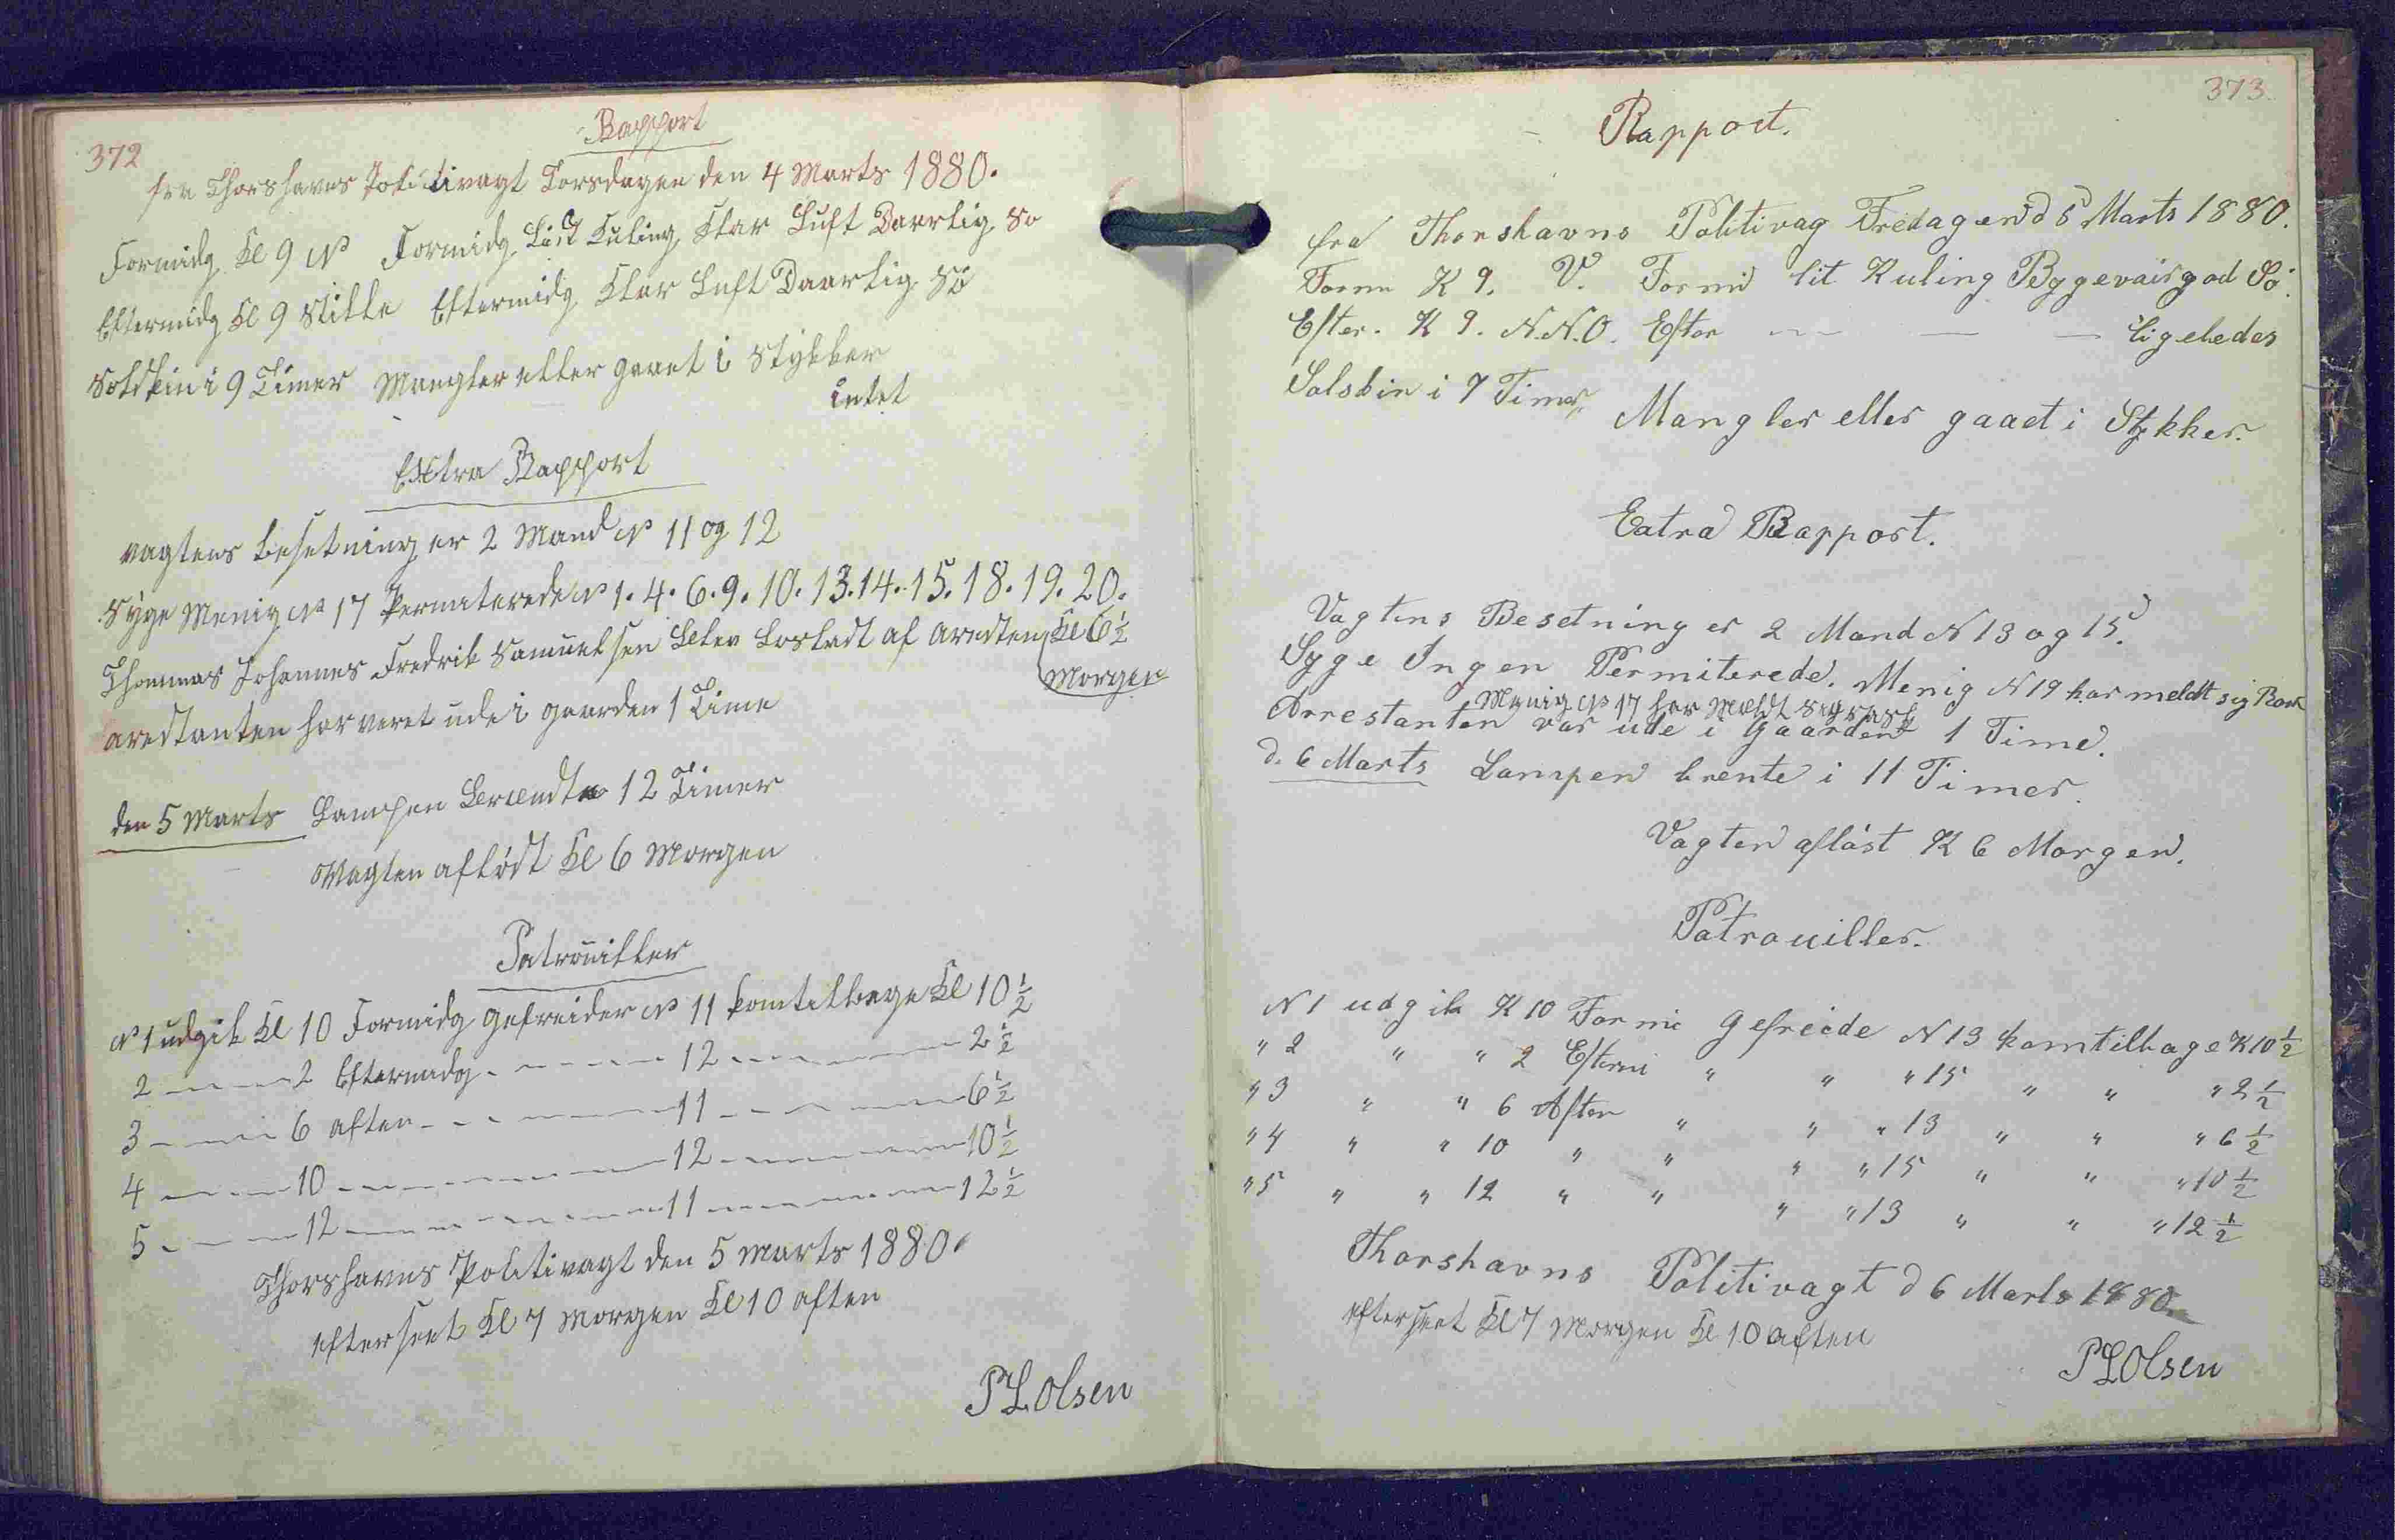 372
Rapport
fra Thorshavns Politivagt Torsdagen den 4 Marts 1880.
Formidg Kl 9 N Formidg Läst Kuling Klar Luft Daarlig So
Eftermidg Kl 9 Stille Eftermidg Klar Luft Daarlig Sö
Solskin i 9 Timer Mangler eller gaaet i Stykker
Intet
Extra Rapport
Vagtens Besetning er 2 Mand No 11 og 12
Syge Menig No 17 Permiterede No 1. 4. 6. 9. 10. 13. 14. 15. 18. 19. 20.
Thommas Johannes Fredrik Samuelsen Blev Losladt af Aresten Kl 6 1/2
Morgen
Arestanten har veret ude i Gaarden 1 Time
den 5 Marts Lampen Brendte 12 Timer
Vagten afløst Kl 6 Morgen
Patrouiller
No 1 udgik Kl 10 Formidg Gefreider No 11 kom tilbage Kl 10 1/2
2 — — — 2 Eftermidg — — — 12 — — — 2 1/2
3 — — — 6 aften — — — 11 — — — 6 1/2
4 — — — 10 — — — 12 — — — 10 1/2
5 — — — 12 — — — 11 — — — 12 1/2
Thorshavns Politivagt den 5 Marts 1880.
efterseet Kl 7 Morgen Kl 10 aften
P L Olsen
373.
Rapport.
fra Thorshavns Politivag Fredagen d 5 Marts 1880.
Form K 9. V. Formid lit Kuling Bygevair god Sö.
Efter. K 9. N.N.O. Efter — — — Ligeledes
Solskin i 7 Timer,, Mangler eller gaaet i Stykker.
Extra Rapport.
Vagtens Besetning er 2 Mand N 13 og 15.
Syge Ingen Permiterede. Menig N 19 har meldt sig Rask
Menig No 17 har Meldt sig rask
Arrestanten var ude i Gaarden 1 Time.
d. 6 Marts Lampen brente i 11 Timer.
Vagten aflöst K 6 Morgen.
Patrouiller.
N 1 udgik K 10 Formi Gefreide N 13 kom tilbage K 10 1/2
" 2 " " 2 Eftermi " " " 15 " " " 2 1/2
" 3 " " 6 Aften " " " 13 " " " 6 1/2
" 4 " " 10 " " " " 15 " " " 10 1/2
" 5 " " 12 " " " " 13 " " " 12 1/2
Thorshavns Politivagt d 6 Marts 1880.
efterseet Kl 7 Morgen Kl 10 aften
P L Olsen